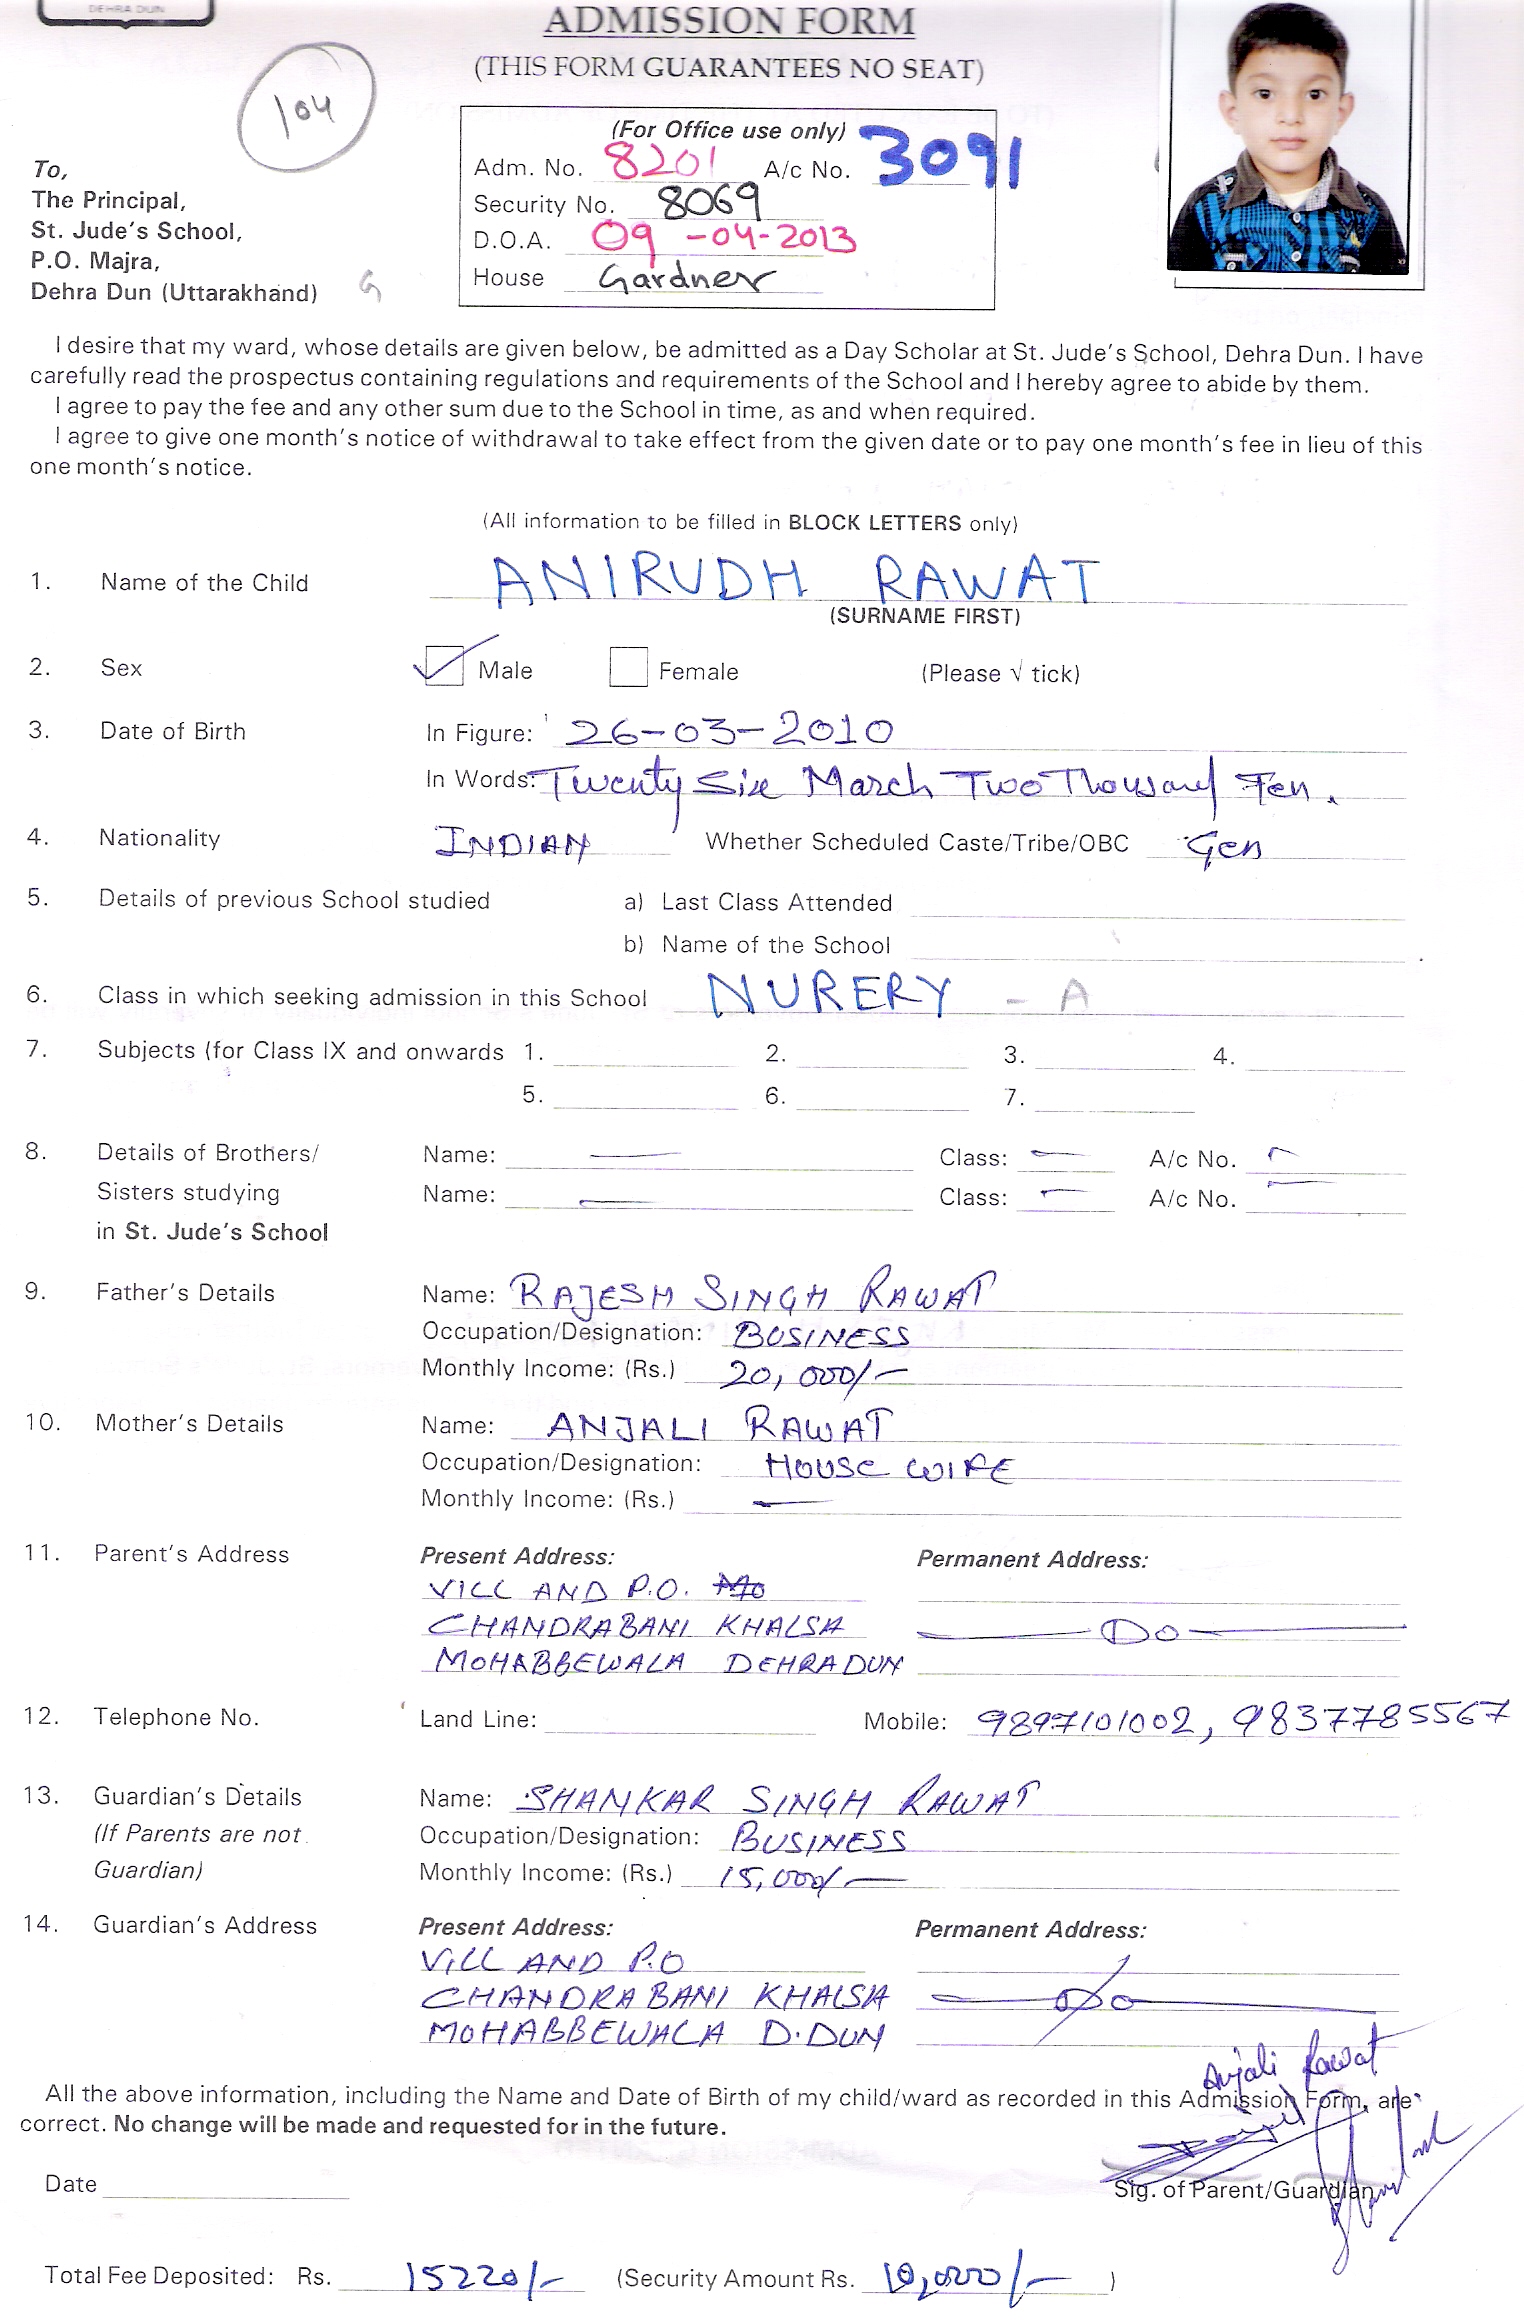 DEHRA DUN
ADMISSION FORM
(THIS FORM GUARANTEES NO SEAT)
104
(For Office use only)
Adm. No. 8201 A/c No. 3091
Security No. 8069
D.O.A. 09-04-2013
House Gardner
To,
The Principal,
St. Jude's School,
P.O. Majra,
Dehra Dun (Uttarakhand) G
I desire that my ward, whose details are given below, be admitted as a Day Scholar at St. Jude's School, Dehra Dun. I have
carefully read the prospectus containing regulations and requirements of the School and I hereby agree to abide by them.
I agree to pay the fee and any other sum due to the School in time, as and when required.
I agree to give one month's notice of withdrawal to take effect from the given date or to pay one month's fee in lieu of this
one month's notice.
(All information to be filled in BLOCK LETTERS only)
1. Name of the Child ANIRUDH RAWAT
(SURNAME FIRST)
2. Sex Male Female (Please √ tick)
3. Date of Birth In Figure: 26-03-2010
In Words: Twenty Six March Two Thousand Ten.
4. Nationality INDIAN Whether Scheduled Caste/Tribe/OBC Gen
5. Details of previous School studied a) Last Class Attended
b) Name of the School
6. Class in which seeking admission in this School NURERY - A
7. Subjects (for Class IX and onwards 1. 2. 3. 4.
5. 6. 7.
8. Details of Brothers/ Name: — Class: — A/c No. —
Sisters studying Name: — Class: — A/c No. —
in St. Jude's School
9. Father's Details Name: RAJESH SINGH RAWAT
Occupation/Designation: BUSINESS
Monthly Income: (Rs.) 20,000/-
10. Mother's Details Name: ANJALI RAWAT
Occupation/Designation: HOUSE WIFE
Monthly Income: (Rs.) —
11. Parent's Address Present Address: Permanent Address:
VILL AND P.O.
CHANDRABANI KHALSA — Do —
MOHABBEWALA DEHRADUN
12. Telephone No. Land Line: Mobile: 9897101002, 9837785567
13. Guardian's Details Name: SHANKAR SINGH RAWAT
(If Parents are not Occupation/Designation: BUSINESS
Guardian) Monthly Income: (Rs.) 15,000/-
14. Guardian's Address Present Address: Permanent Address:
VILL AND P.O
CHANDRABANI KHALSA — Do —
MOHABBEWALA D.DUN
Anjali Rawat
All the above information, including the Name and Date of Birth of my child/ward as recorded in this Admission Form, are
correct. No change will be made and requested for in the future.
Date Sig. of Parent/Guardian
Total Fee Deposited: Rs. 15220/- (Security Amount Rs. 10,000/- )